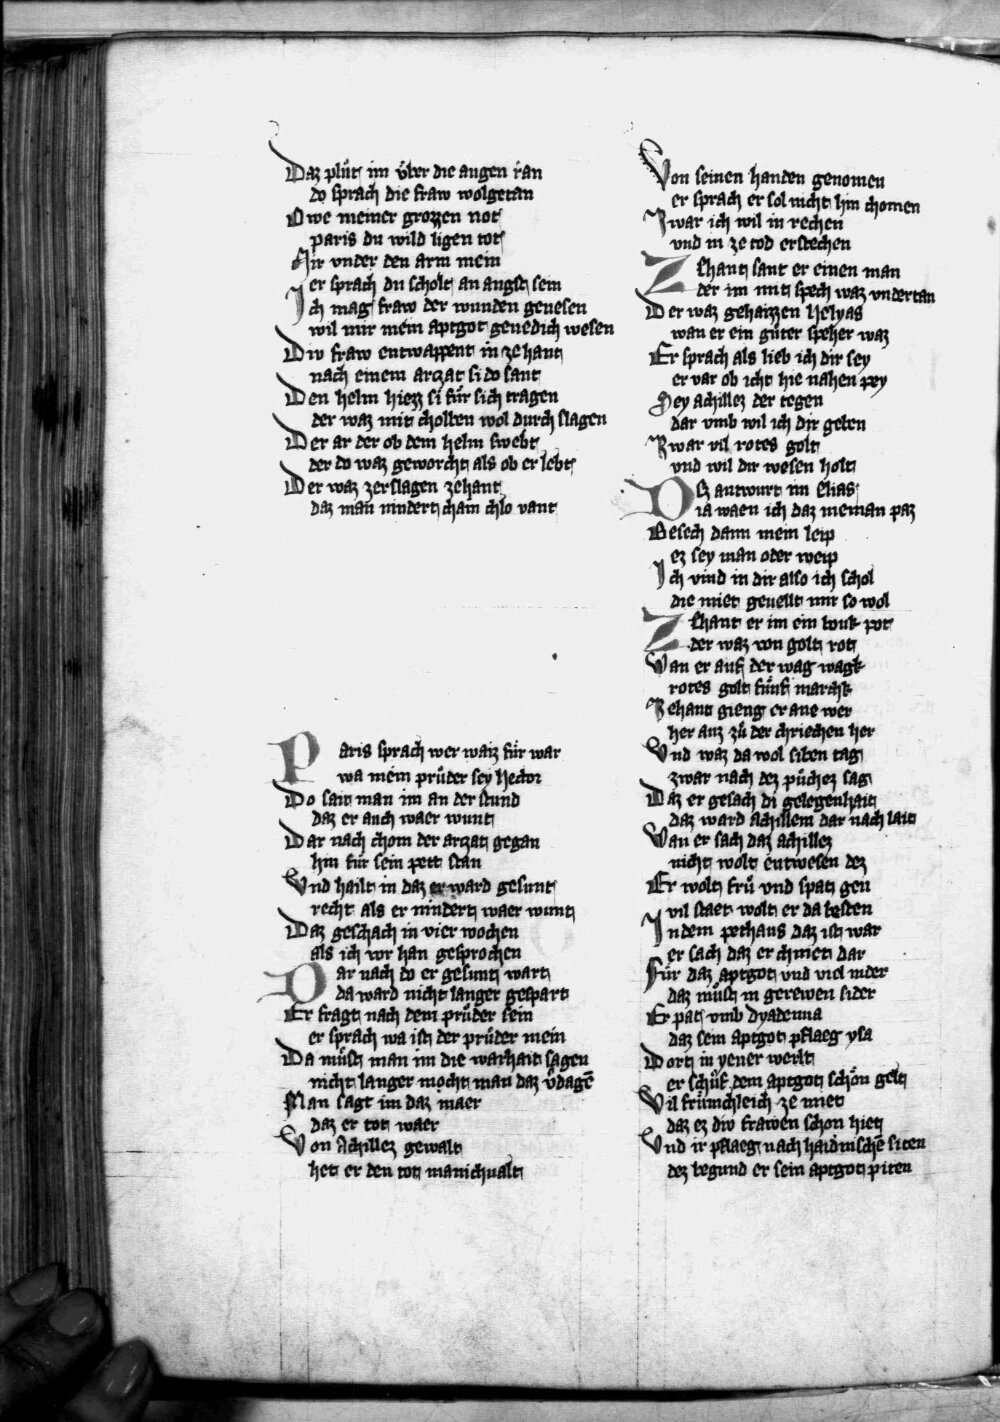 Daz plůt im vber die augen ran
do sprach die fraw wolgetan
Owe meiner grozzen not
paris du wild ligen tot
Mir vnder den arm mein
er sprach du scholt an angst sein
Ich mag fraw der wunden genesen
wil mir mein aptgot genedich wesen
Div fraw entwappent in zehant
nach einem arzat si do sant
Den helm hiezz si für sich tragen
der waz mit cholben wol durch slagen
Der ar der ob dem helm swebt
der do waz geworcht als ob er lebt
Der waz zerslagen zehant
daz man nindert chain chlo vant
Paris sprach wer waiz für war
wa mein průder sey hector
Do sait man im an der stund
daz er auch waer wunt
Dar nach chom der arzat gegan
hin für sein pett stan
Vnd hailt in daz er ward gesunt
recht als er nindert waer wunt
Daz geschach in vier wochen
als ich vor han gesprochen
Dar nach do er gesunt wart
da ward nicht langer gespart
Er fragt nach dem průder sein
er sprach wa ist der průder mein
Da můst man im die warhait sagen
nicht langer mocht man daz v̊dagē
Man sagt im daz maer
daz er tot waer
Von Achillez gewalt
het er den tot manichualt
Von seinen handen genomen
er sprach er sol nicht hin chomen
Zwar ich wil in rechen
vnd in ze tod erstechen
Zehant sant er einen man
der im mit spech waz vndertan
Der waz gehaizzen helyas
wan er ein gůter speher waz
Er sprach als lieb ich dir sey
er var ob icht hie nahen pey
Sey achillez der tegen
dar vmb wil ich dir geben
Zwar vil rotes golt
vnd wil dir wesen holt
Dez antwurt im Elias
ia waen ich daz nieman paz
Besech dann mein leip
ez sey man oder weip
Ich vind in dir also ich schol
die miet geuellt mir so wol
Zehant er im ein pot
der waz von golt rot
Wan er auf der wag wagk
rotes golt fünf marchk
Zehant gieng er ane wer
her auz zů der chriechen her
Vnd waz da wol siben tag
zwar nach dez půchez sag
Daz er gesach di gelegenhait
daz ward achillem dar nach lait
Wan er sach daz achillez
nicht wolt entwesen dez
Er wolt frů vnd spat gen
vil staet wolt er da besten
In dem pethaus daz ist war
er sach daz er chniet dar
Für daz aptgot vnd viel nider
daz můst in gerewen sider
Er pat vmb Dyadema
daz sein aptgot pflaeg ysa
Dort in yener werlt
er schůf dem aptgot schön gelt
Vil frümchleich ze miet
daz ez div frawen schon hiet
Vnd ir pflaeg nach haidnischē siten
dez begund er sein aptgot piten